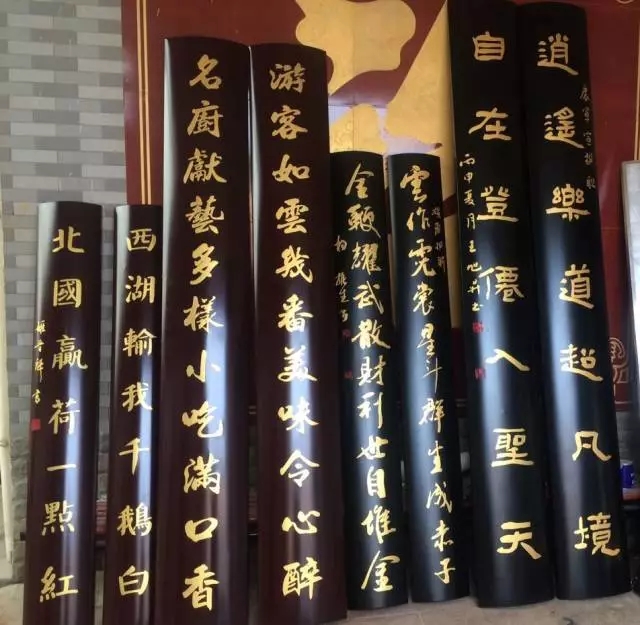 逍遙樂道超凡境
自在登僊入聖天
丙申夏月王旭
雲作霓裳星斗群生成赤子
金鞭耀武散財利世自堆金
游客如雲幾番美味令心醉
名廚獻藝多樣小吃滿口香
西湖輸我千鵝白
北國贏荷一點紅